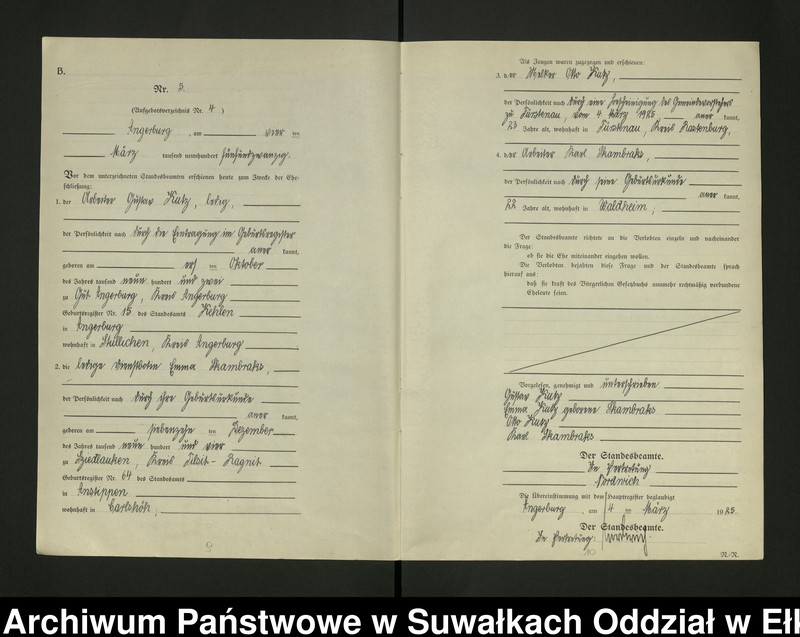 B.
Nr. 5.
(Aufgebotsverzeichnis Nr. 4 )
Angerburg, am vier ten
März tausend neunhundert fünfundzwanzig.
Vor dem unterzeichneten Standesbeamten erschienen heute zum Zwecke der Ehe-
schließung:
1. der Arbeiter Gustav Kutz, ledig,
der Persönlichkeit nach durch die Eintragung im Geburtsregister
aner kannt,
geboren am ers ten Oktober
des Jahres tausend neun hundert und zwei
zu Gut Angerburg, Kreis Angerburg
Geburtsregister Nr. 15 des Standesamts Kehlen
in Angerburg
wohnhaft in Stullichen, Kreis Angerburg
2. die ledige Dienstbotin Emma Skambraks,
der Persönlichkeit nach durch ihre Geburtsurkunde
aner kannt,
geboren am siebenzehn ten Dezember
des Jahres tausend neun hundert und vier
zu Kreis Tilsit-Ragnit
Geburtsregister Nr. 64 des Standesamts
in Anstippen
wohnhaft in Carlshöh,
9
Als Zeugen waren zugezogen und erschienen:
3. der Melker Otto Kutz,
der Persönlichkeit nach durch eine Bescheinigung des Gemeindevorstehers
zu Fürstenau, vom 4. März 1925, aner kannt,
23 Jahre alt, wohnhaft in Fürstenau, Kreis Rastenburg,
4. der Arbeiter Karl Skambraks,
der Persönlichkeit nach durch seine Geburtsurkunde
aner kannt,
22 Jahre alt, wohnhaft in Waldheim,
Der Standesbeamte richtete an die Verlobten einzeln und nacheinander
die Frage:
ob sie die Ehe miteinander eingehen wollen.
Die Verlobten bejahten diese Frage und der Standesbeamte sprach
hierauf aus:
daß sie kraft des Bürgerlichen Gesetzbuchs nunmehr rechtmäßig verbundene
Eheleute seien.
Vorgelesen, genehmigt und unterschrieben
Gustav Kutz
Emma Kutz geborene Skambraks
Otto Kutz
Karl Skambraks
Der Standesbeamte.
In Vertretung
Nordwich
Die Übereinstimmung mit dem Hauptregister beglaubigt
Angerburg, am 4 ten März 1925.
Der Standesbeamte.
In Vertretung:
10
N./N.
Archiwum Państwowe w Suwałkach Oddział w Ełk